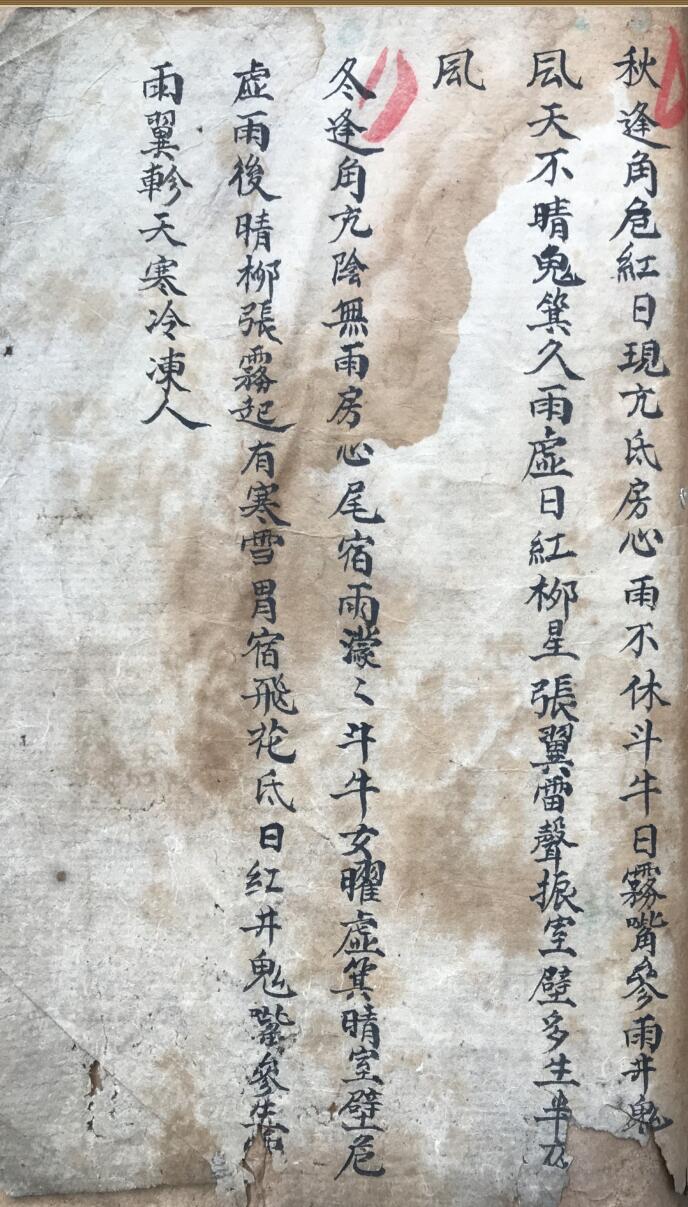 秋逢角危紅日現亢氐房心雨不休斗牛日霧嘴參雨井鬼
风天不晴鬼箕久雨虛日紅柳星張翼雷聲振室壁多生半
风
冬逢角亢陰無雨房心尾宿雨濛〻斗牛女曜虛箕晴室壁危
虛雨後晴柳張霧起有寒雪胃宿飛花氐日紅井鬼嘴參
雨翼軫天寒冷凍人